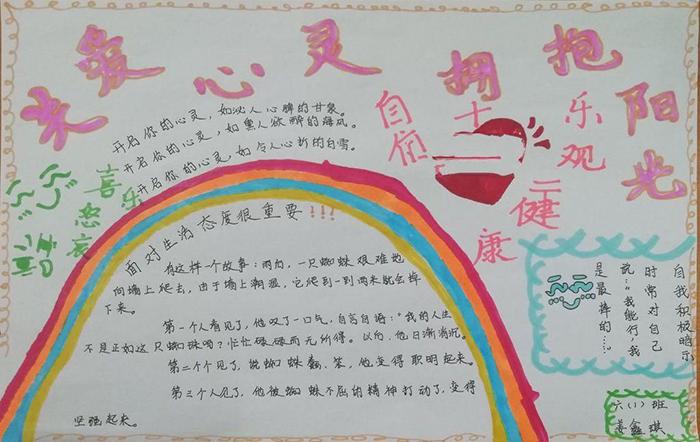 关爱心灵 拥抱阳光
开启你的心灵，如沁人心脾的甘泉。
开启你的心灵，如熏人欲醉的海风。
开启你的心灵，如令人心折的白雪。
喜怒哀乐
自信＋乐观＝健康
面对生活态度很重要!!!
有这样一个故事：雨后，一只蜘蛛艰难地
向墙上爬去，由于墙上潮湿，它爬到一到两米就会掉
下来。
第一个人看见了，他叹了一口气，自言自语：“我的人生
不是正如这只蜘蛛吗？忙忙碌碌而无所得。以后，他日渐消沉。
第二个个见了，说蜘蛛蠢、笨，他变得聪明起来。
第三个人见了，他被蜘蛛不屈的精神打动了，变得
坚强起来。
自我积极暗示
时常对自己
说：“我能行，我
是最棒的…
六（1）班
姜鑫琪